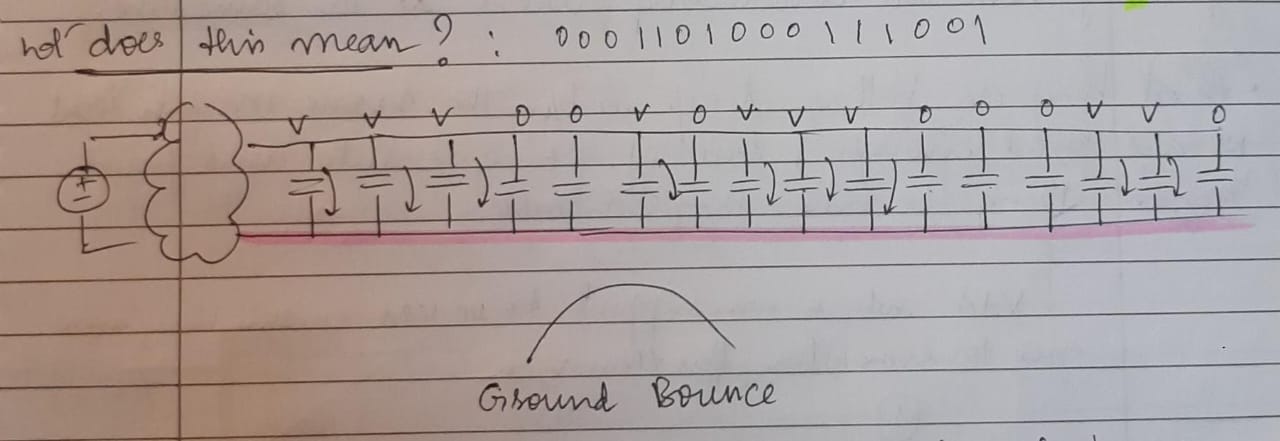 does this mean? : 0001101000111001
V V V 0 0 V 0 V V V 0 0 0 V V 0
+
-
Ground Bounce